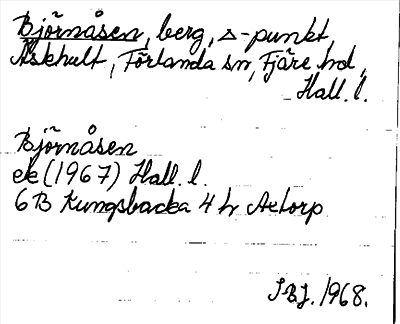 Björnåsen, berg, △-punkt,
Äskhult, Förlanda sn, Fjäre hd,
Hall. l.
Björnåsen
ek (1967) Hall. l.
6B Kungsbacka 4 h Axtorp
SBJ. 1968.